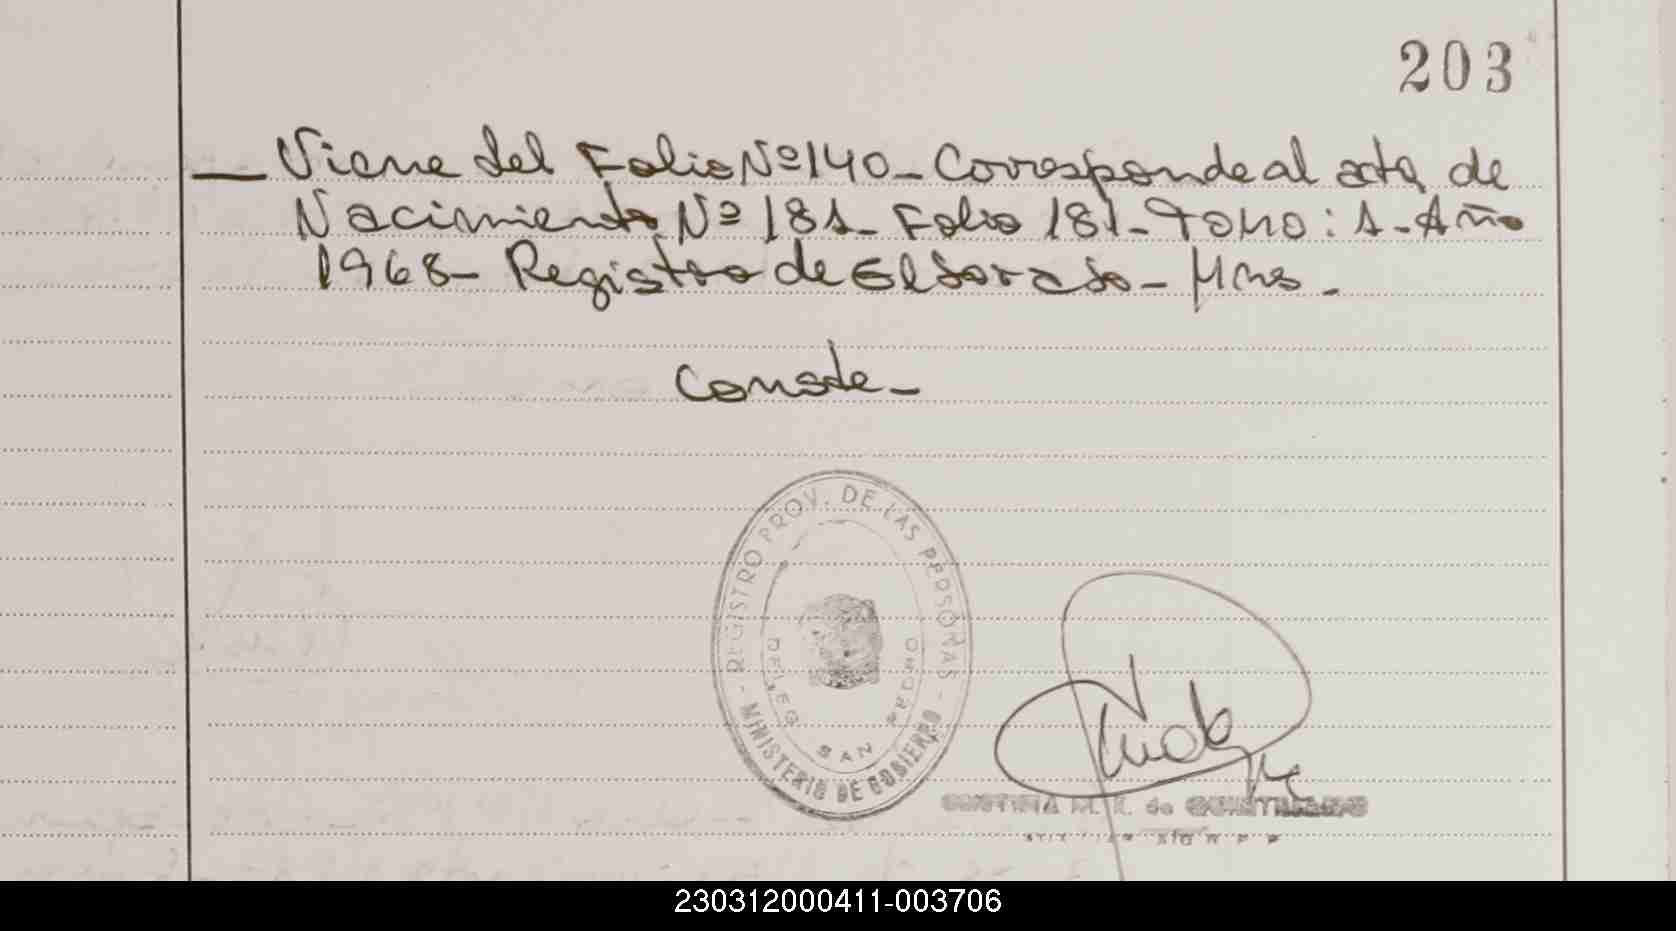 203
— Viene del Folio Nº 140 - Corresponde al acta de
Nacimiento Nº 181 - Folio 181 - Tomo: 1 - Año
1968 - Registro de Eldorado - Mnes.
Conste -
- REGISTRO PROV. DE LAS PERSONAS -
DELEG
SAN
PEDRO
MINISTERIO DE GOBIERNO
CRISTINA M. R. de
230312000411-003706